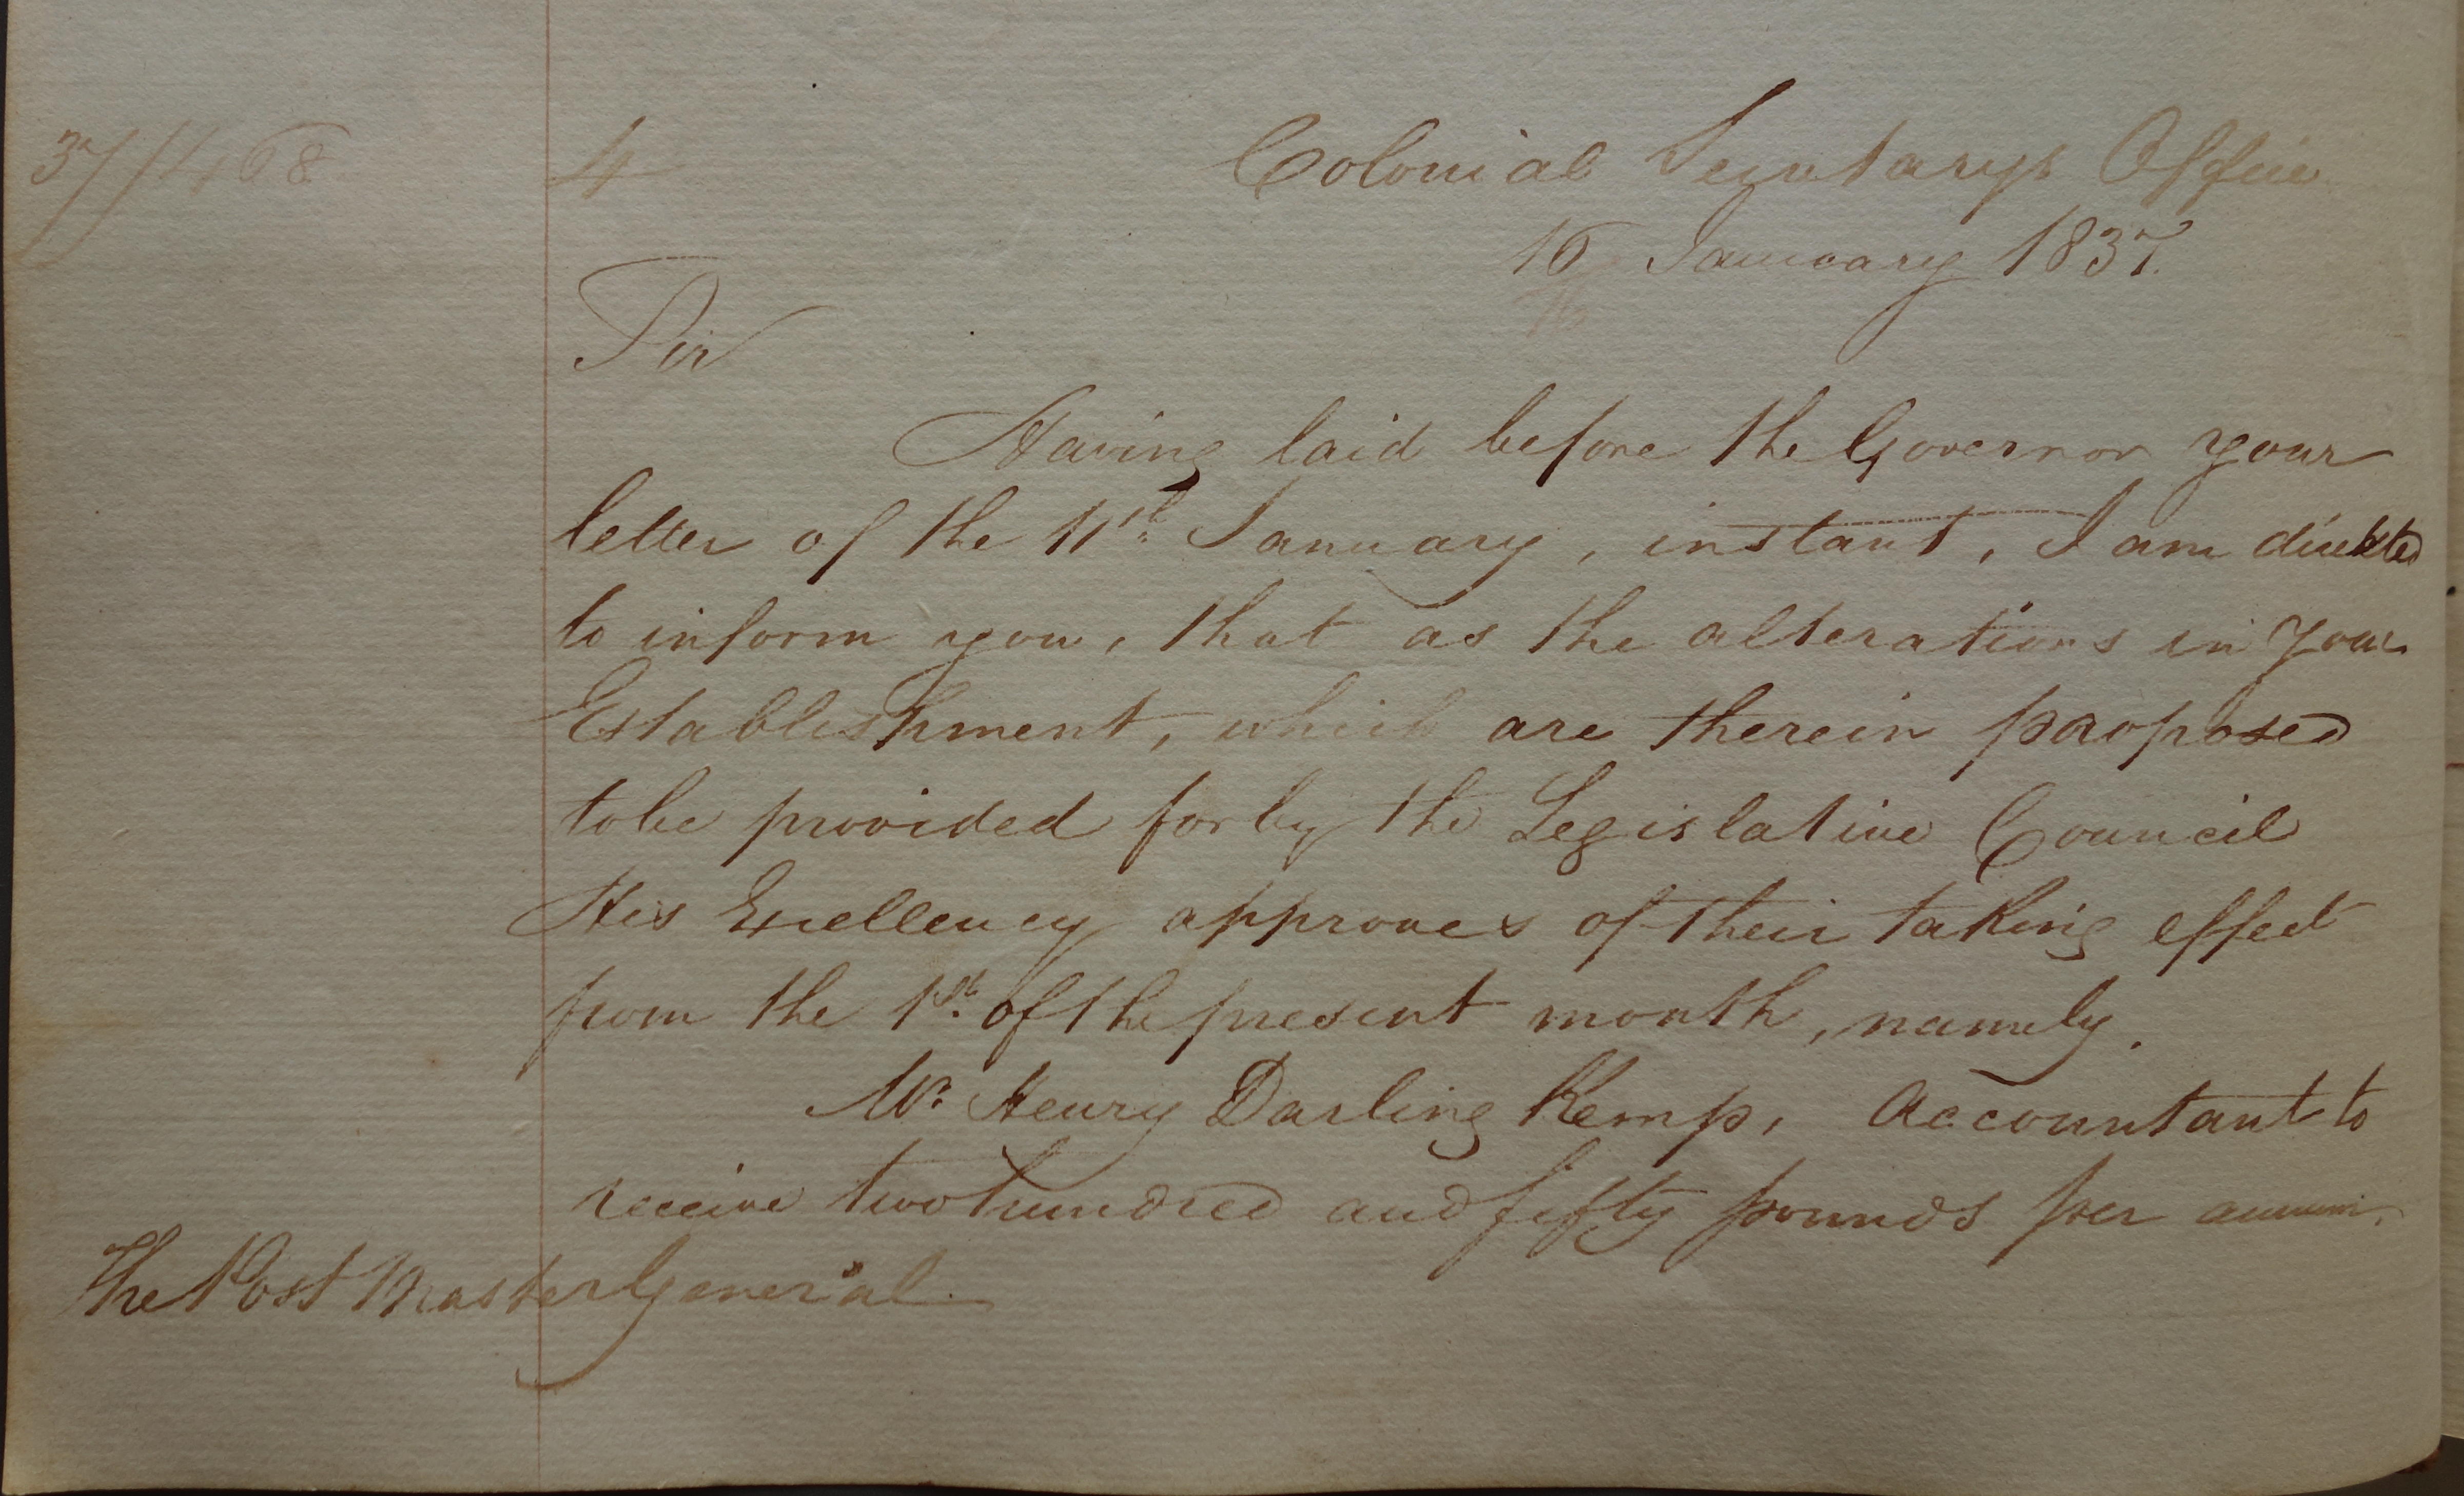 37/468
4
Colonial Secretarys Office
16 January 1837.
16
Sir
Having laid before the Governor your
letter of the 11th January, instant, I am directed
to inform you, that as the alterations in your
Establishment, which are therein proposed
to be provided for by the Legislative Council
His Excellency approves of their taking effect
from the 1st. of the present month, namely.
Mr. Henry Darling Kemp, Accountant to
receive two hundred and fifty pounds per annum.
The Post Master General